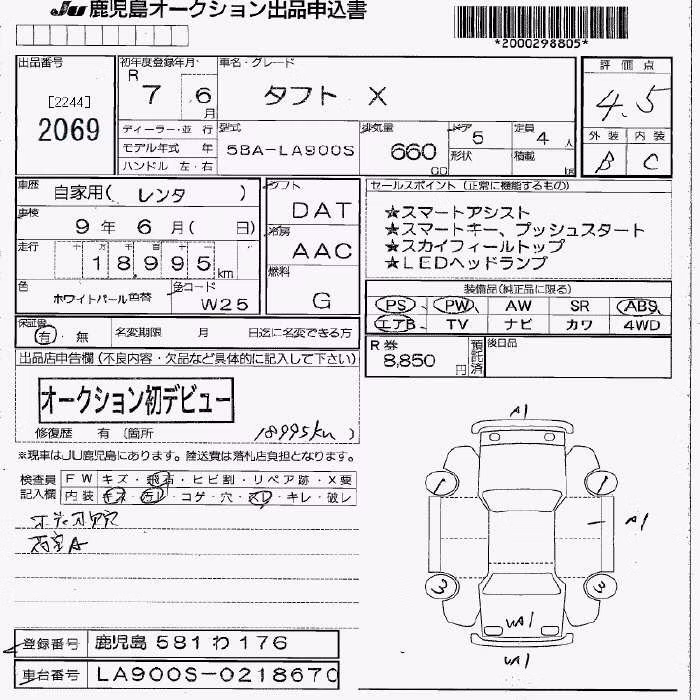 JU 鹿児島オークション出品申込書
*2000298805*
出品番号
[2244]
2069
初年度登録年月
R 7 6月
車名・グレード
タフト X
評価点
4.5
外装 内装
B C
ディーラー・並行
モデル年式 年
ハンドル 左・右
型式
5BA-LA900S
排気量
660
CC
ドア 5
形状
定員 4 人
積載 kg
車歴
自家用( レンタ )
車検
9 年 6 月( 日)
走行
18,995 km
色
ホワイトパール色替
色コード
W25
シフト
DAT
冷房
AAC
燃料
G
セールスポイント (正常に機能するもの)
★スマートアシスト
★スマートキー、プッシュスタート
★スカイフィールトップ
★LEDヘッドランプ
装備品(純正品に限る)
PS PW AW SR ABS
エアB TV ナビ カワ 4WD
保証書
有・無
名変期限 月 日迄に名変できる方
R券
8,850円
預託済
後日品
出品店申告欄(不良内容・欠品など具体的に記入して下さい)
オークション初デビュー
修復歴 有 〔箇所 18995km 〕
※現車はJU鹿児島にあります。陸送費は落札店負担となります。
検査員記入欄
FW キズ・飛石・ヒビ割・リペア跡・X要
内装 キズ・汚レ・コゲ・穴・スレ・キレ・破レ
A1
1
1
A1
3
3
UA1
UA1
登録番号 鹿児島 581 わ 176
車台番号 LA900S-0218670